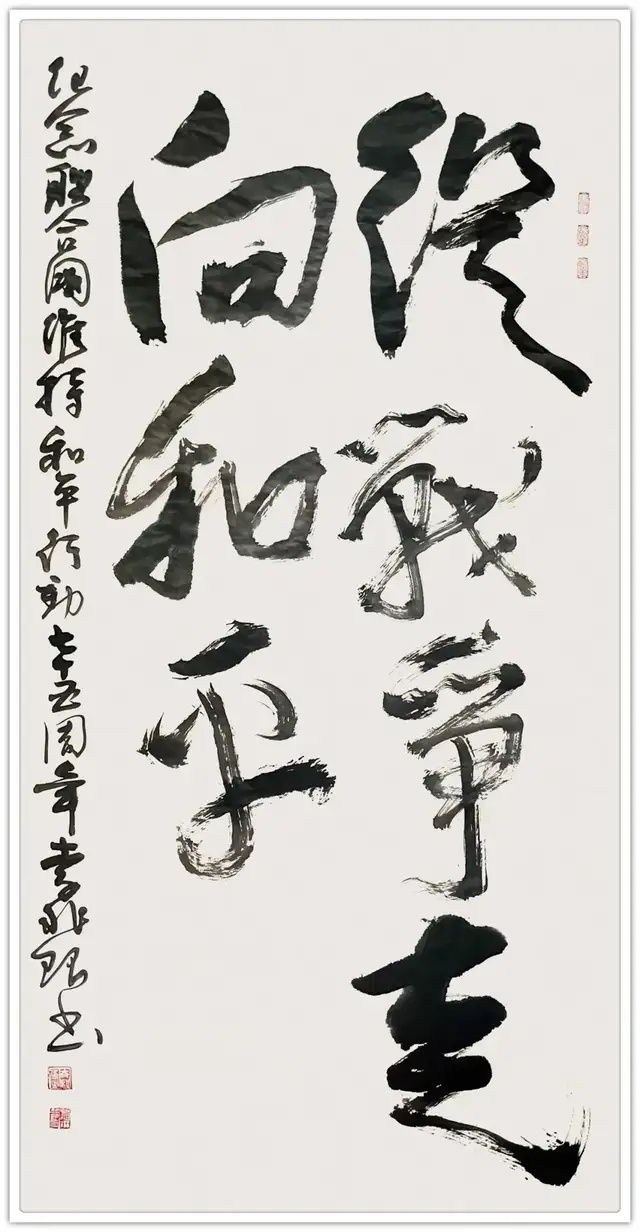 從戰爭走
向和平
紀念聯合國維持和平行動七十五周年李书